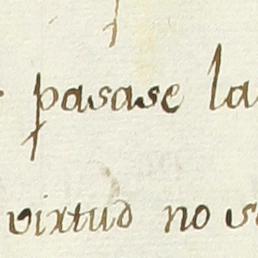 pasase la
virtud no s